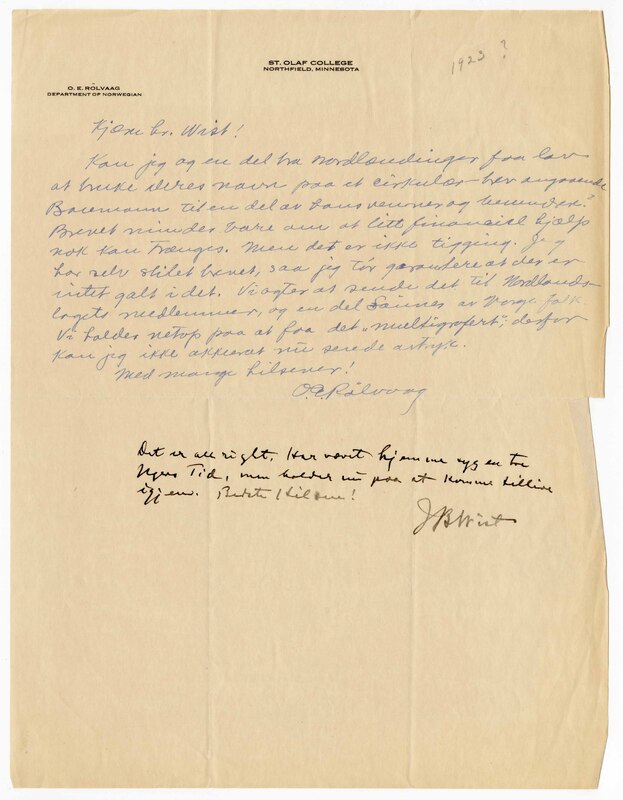 ST. OLAF COLLEGE
NORTHFIELD, MINNESOTA
1923 ?
O. E. RÖLVAAG
DEPARTMENT OF NORWEGIAN
Kjære hr. Wist!
Kan jeg og en del bra Nordlændinger faa lov
at bruke deres navn paa et cirkulær brev angaaende
Baumann til en del av hans venner og beundrere?
Brevet mindes bare om at litt finansiel hjælp
nok kan trænges. Men det er ikke tigging. Jeg
har selv stilet brevet, saa jeg tør garantere at der er
intet galt i det. Vi agter at sende det til Nordlands-
lagets medlemmer, og en del Sønnes av Norge folk
Vi holder netop paa at faa det „multigrafert"; derfor
kan jeg ikke akkurat nu sende avtryk.
Med mange hilsener!
O.E. Rölvaag
Det er all right. Har været hjemme syg en tre
Ugers Tid, men holder nu paa at komme tillive
igjen. Bedste Hilsen!
JBWist